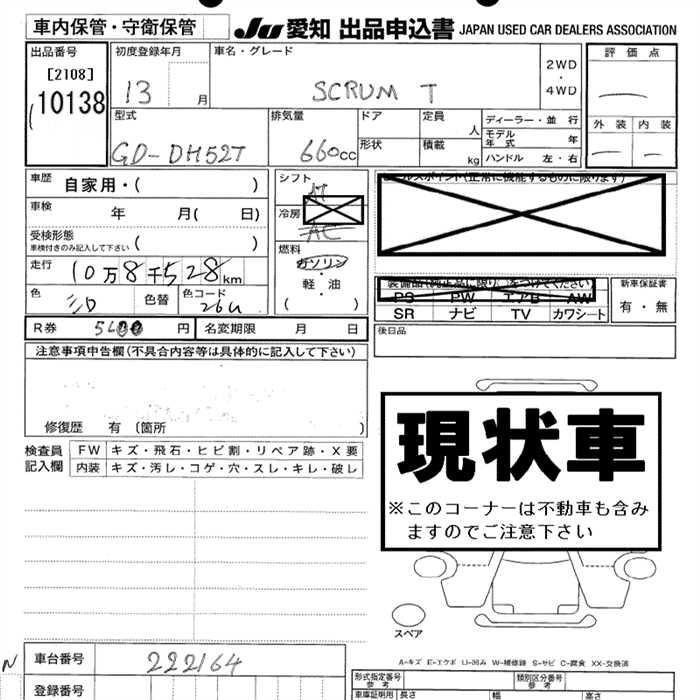 車内保管・守衛保管
JU 愛知 出品申込書 JAPAN USED CAR DEALERS ASSOCIATION
出品番号
[2108]
10138
初度登録年月
13 月
車名・グレード
SCRUM T
2WD
・
4WD
評価点
外装 内装
型式
GD-DH52T
排気量
660cc
ドア
形状
定員
人
積載
kg
ディーラー・並行
モデル年式 年
ハンドル 左・右
車歴 自家用・( )
車検 年 月( 日)
受検形態
車検付きのみ記入して下さい ( )
走行 10万8千528km
色 シロ 色替 色コード 26U
シフト
AT
冷房
AC
燃料
ガソリン
・
軽・油
( )
(正常に機能するものに限ります)
装備品(純正品に限り○をつけてください)
PS PW エアB AW
SR ナビ TV カワシート
新車保証書
有・無
後日品
R券 5600 円 名変期限 月 日
注意事項申告欄(不具合内容等は具体的に記入して下さい)
修復歴 有 〔箇所 〕
検査員
記入欄
FW キズ・飛石・ヒビ割・リペア跡・X要
内装 キズ・汚レ・コゲ・穴・スレ・キレ・破レ
現状車
※このコーナーは不動車も含み
ますのでご注意下さい
スペア
A-キズ E-エクボ U-凹み W-補修跡 S-サビ C-腐食 XX-交換済
N
車台番号 222164
登録番号
形式指定番号
参考
類別区分番号
参考
車庫証明用 長さ 幅 高さ